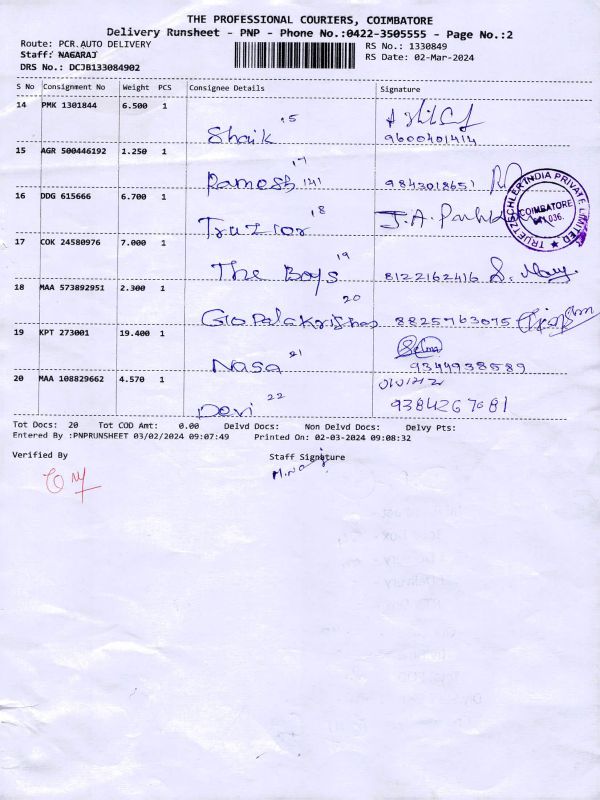 THE PROFESSIONAL COURIERS, COIMBATORE
Delivery Runsheet - PNP - Phone No.:0422-3505555 - Page No.:2
Route: PCR.AUTO DELIVERY
RS No.: 1330849
Staff: NAGARAJ
RS Date: 02-Mar-2024
DRS No.: DCJB133084902
S No Consignment No Weight PCS Consignee Details Signature
14 PMK 1301844 6.500 1
15
Shaik 9600401414
15 AGR 500446192 1.250 1
17
Ramesh 141 9843018651
16 DDG 615666 6.700 1
18
COIMBATORE
17 COK 24580976 7.000 1
19
The Boys 8122162416
18 MAA 573892951 2.300 1
20
Gopalakrishnan 8825763075
19 KPT 273001 19.400 1
21
Nasa 9344938589
20 MAA 108829662 4.570 1
22
Devi 9384267081
Tot Docs: 20 Tot COD Amt: 0.00 Delvd Docs: Non Delvd Docs: Delvy Pts:
Entered By :PNPRUNSHEET 03/02/2024 09:07:49 Printed On: 02-03-2024 09:08:32
Verified By Staff Signature